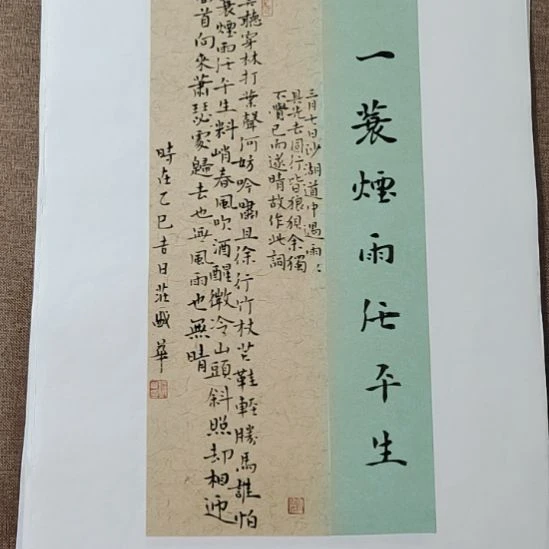 一蓑煙雨任平生
三月七日沙湖道中遇雨雨
具先去同行皆狼狽余獨
不覺已而遂晴故作此詞
聽穿林打葉聲何妨吟嘯且徐行竹杖芒鞋輕勝馬誰怕
蓑煙雨任平生料峭春風吹酒醒微冷山頭斜照却相迎
首向來蕭瑟處歸去也無風雨也無晴
時在乙巳吉日莊盛華